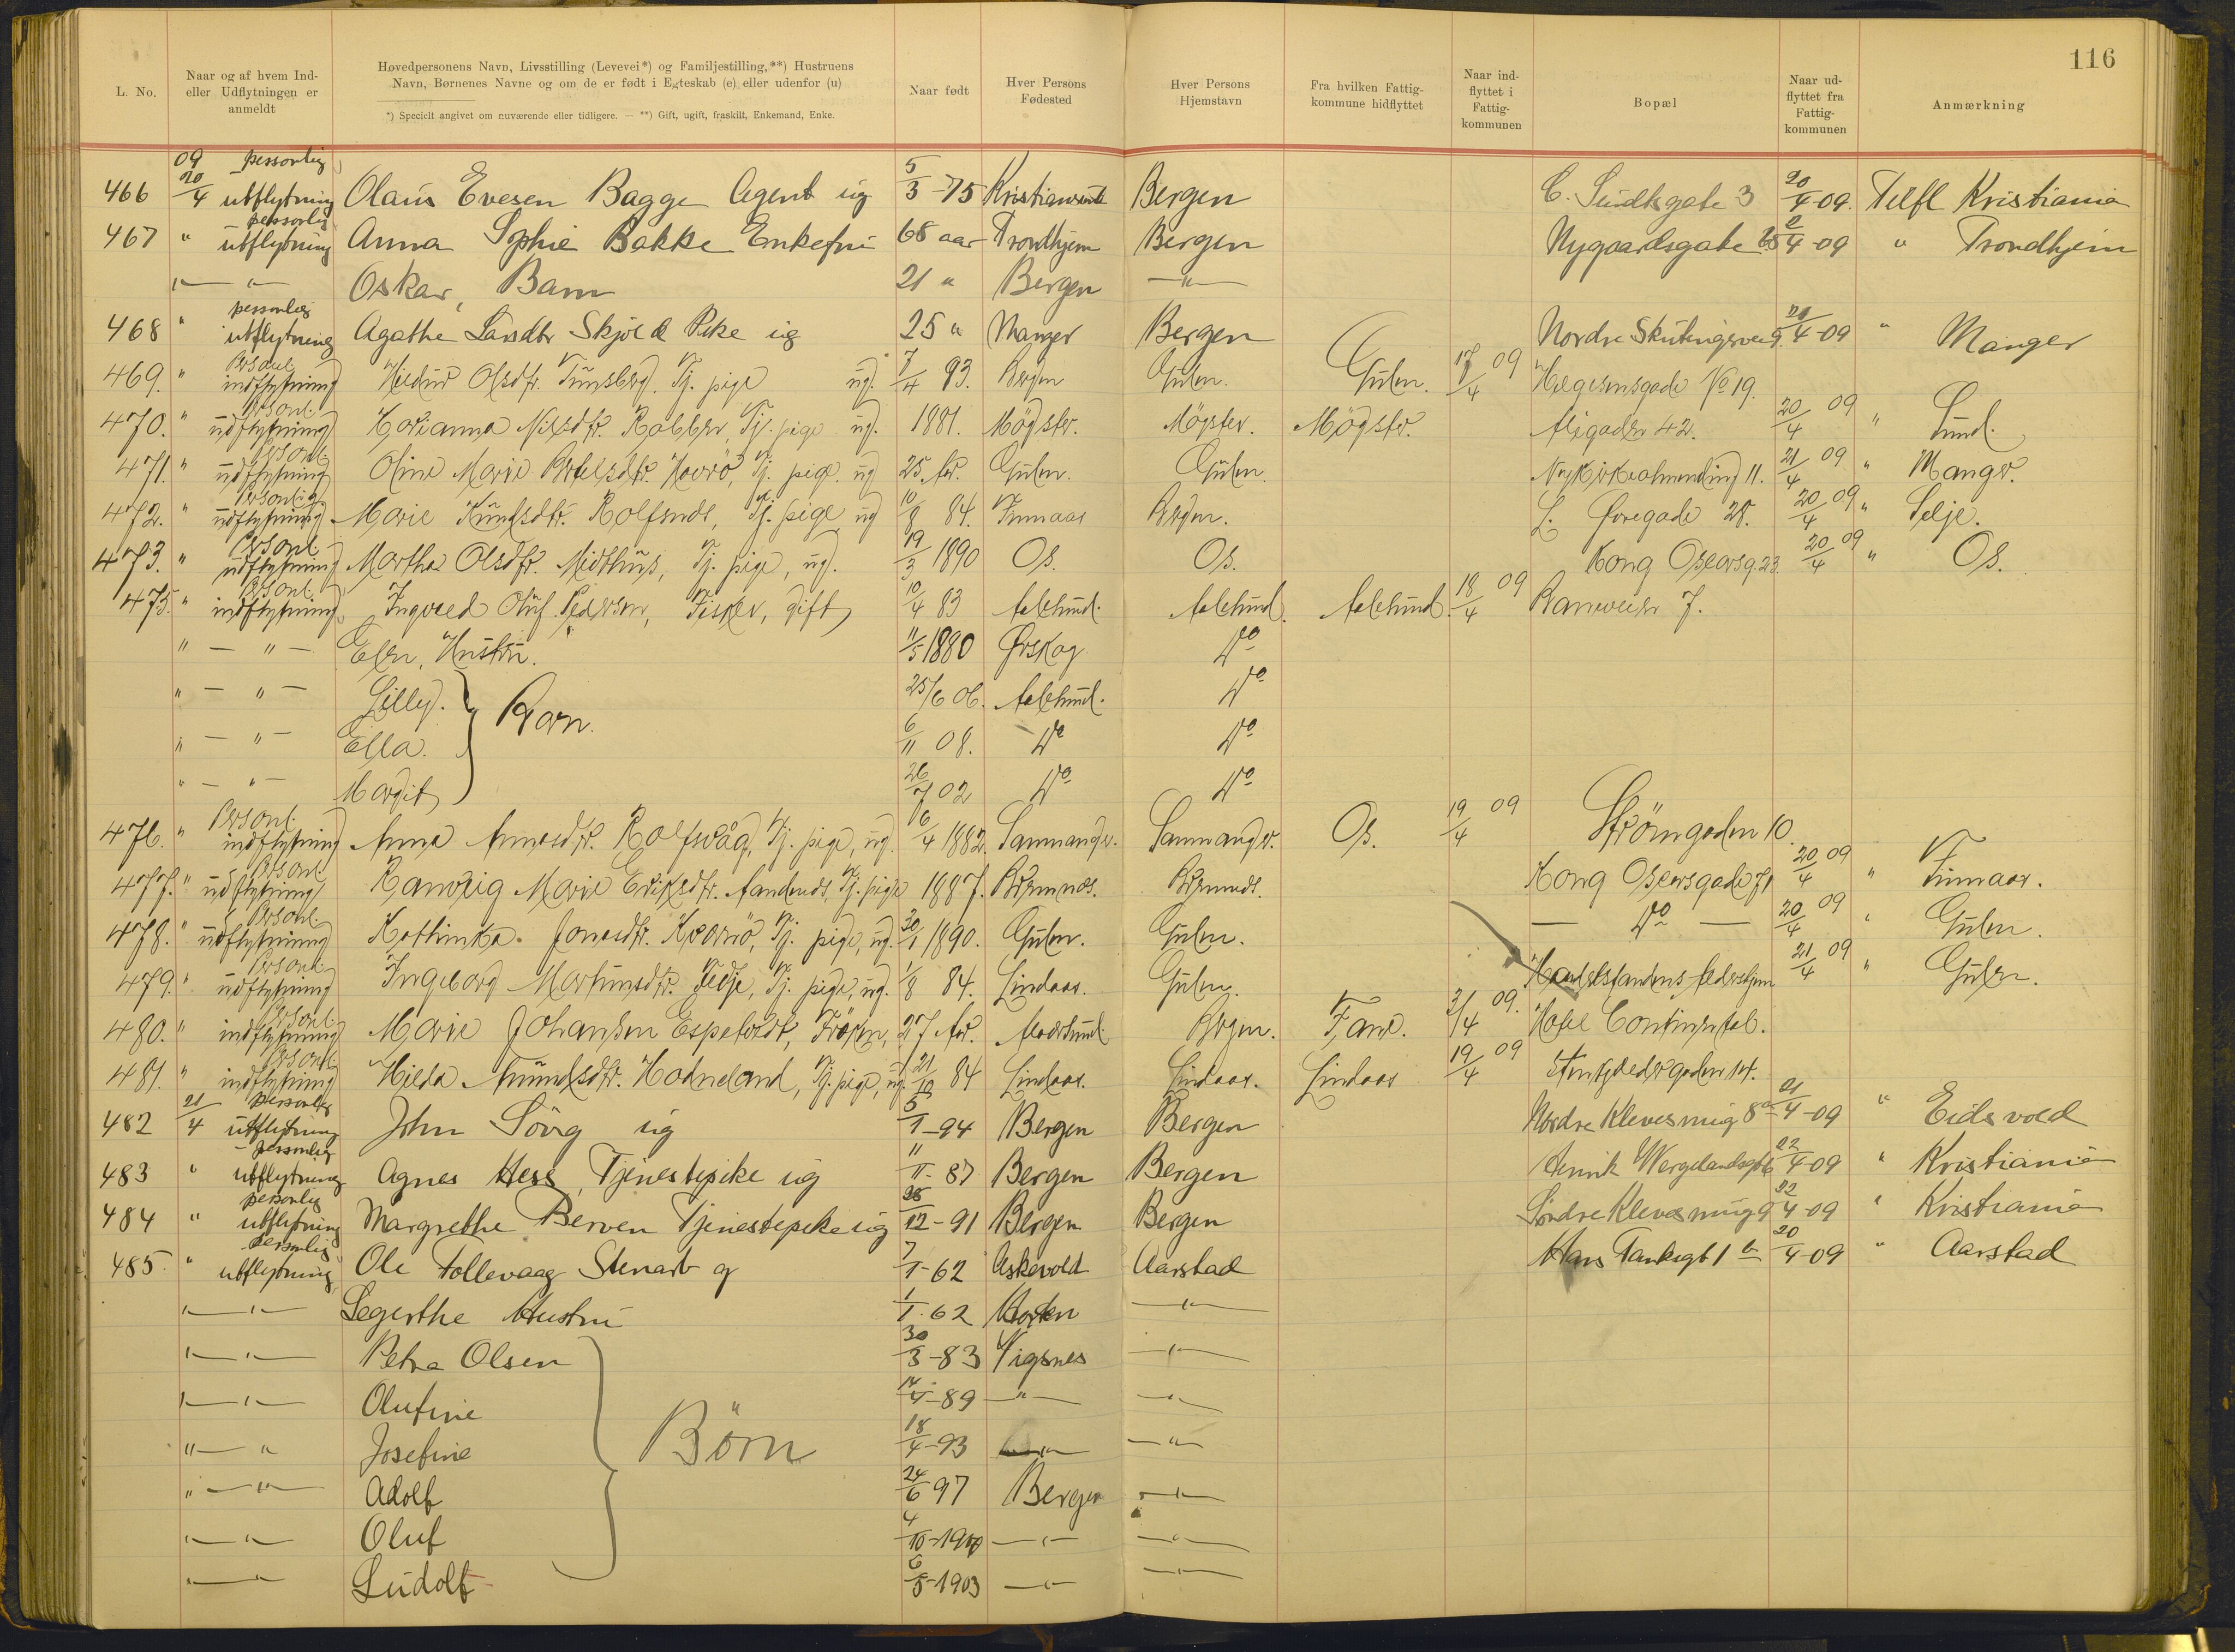 116
L. No.
Naar og af hvem Ind- eller Udflytningen er anmeldt
Hovedpersonens Navn, Livsstilling (Levevei*) og Familjestilling,**) Hustruens Navn, Børnenes Navne og om de er født i Egteskab (e) eller udenfor (u)
*) Specielt angivet om nuværende eller tidligere. — **) Gift, ugift, fraskilt, Enkemand, Enke.
Naar født
Hver Persons Fødested
Hver Persons Hjemstavn
Fra hvilken Fattig- kommune hidflyttet
Naar ind- flyttet i Fattig- kommunen
Bopæl
Naar ud- flyttet fra Fattig- kommunen
Anmærkning
466 09 20/4 personlig utflytning Olaus Evesen Bagge Agent ug 5/3-75 Kristiansund Bergen C. Sundtsgate 3 20/4-09. Tilfl Kristiania
467 " personlig utflytning Anna Sophie Bakke Enkefru 68 aar Trondhjem Bergen Nygaardsgate 2/4-09 " Trondhjem
" — " — Oskar, Barn 21 " Bergen — " —
468 " personlig utflytning Agathe Larsdtr Skjold Pike ug 25 " Manger Bergen Nordre Skutengsvei 9. 21/4-09 " Manger
469. " Personl. indflytning Olsdtr. Tunsberg. Tj. pige ug. 7/4 93. Bergen Gulen. Gulen. 17/4 09 Helgesensgade No 19.
470. " Personl. udflytning Nilsdtr. Tj. pige ug. 1881. Møgster. Møgster. Møgster. 42. 20/4 09 " Sund.
471. " Personl. udflytning Oline Marie Tj. pige. ug 25 Aar. Gulen. Gulen. Nykirkealmending 11. 21/4 09 " Manger.
472. " Personlig udflytning Marie Knudsdtr. Rolfsnes, Tj. pige ug 10/8 84. Finnaas Bergen. L. Øvregade 28. 20/4 09 " Selje.
473. " Personl. udflytning Martha Olsdtr. Midthus, Tj. pige, ug. 19/3 1890 Os. Os. Kong Oscarsg. 23. 20/4 09 " Os.
475. " Personl. indflytning Ingvald Oluf Pedersen, Fisker, gift 10/4 83 Aalesund. Aalesund. Aalesund. 18/4 09 7.
" — " — Elen, Hustru. 11/5 1880 Ørskog Do
" — " — Lilly. } Barn. 25/6 06. Aalesund. Do
" — " — Ella. 6/11 08. Do Do
" — " — Margit 26/7 02 Do Do
476. " Personl. indflytning Anna Rolfsvåg, Tj. pige, ug. 16/4 1882. Samnanger. Samnanger. Os. 19/4 09 Strømgaden 10.
477. " Personl. udflytning Marie Eriksdtr. Tj. pige 1887. Bremnes. Bremnes. Kong Oscarsgade 71 20/4 09 " Finnaas.
478. " Personl. udflytning Kathinka. Jonasdtr. Tj. pige, ug. 30/1 1890. Gulen. Gulen. — Do — 20/4 09 " Gulen.
479. " Personl. udflytning Ingeborg Martinusdtr. Fedje, Tj. pige, ug. 1/8 84. Lindaas. Gulen. Handelsstandens Aldershjem 21/4 09 " Gulen.
480. " Personl. indflytning Marie Johansen Frøken, 27 Aar. Bergen. Fane. 3/4 09. Hotel Continental.
481. " Personl. indflytning Hilda Hodneland, Tj. pige, ug. 21/10 84 Lindaas. Lindaas. Lindaas 19/4 09 14.
482 21/4 personlig utflytning John Sörg ug 5/1-94 Bergen Bergen Nordre Klevesmug 8a 21/4-09 " Eidsvold
483 " personlig utflytning Agnes Hess, Tjenestepike ug 11/11-87 Bergen Bergen Henrik Wergelandsgt 22/4-09 " Kristiania
484 " personlig utflytning Margrethe Berven Tjenestepike ug 28/12-91 Bergen Bergen Søndre Klevesmug 9 22/4-09 " Kristiania
485 " personlig utflytning Ole Tollevaag Stenarb g 7/1-62 Askevold Aarstad Hans Tanksgt 1 b 20/4-09 " Aarstad
" — " — Segerthe Hustru 1/1-62 Horten — " —
" — " — Petra Olsen 30/3-83 Vigsnes — " —
" — " — Olufine 14/4-89 — " — — " —
" — " Josefine } Börn 18/4-93 — " — — " —
" — " — Adolf 24/6 97 Bergen — " —
" — " — Oluf 4/10-1900 — " — — " —
" — " — Ludolf 6/5-1903 — " — — " —